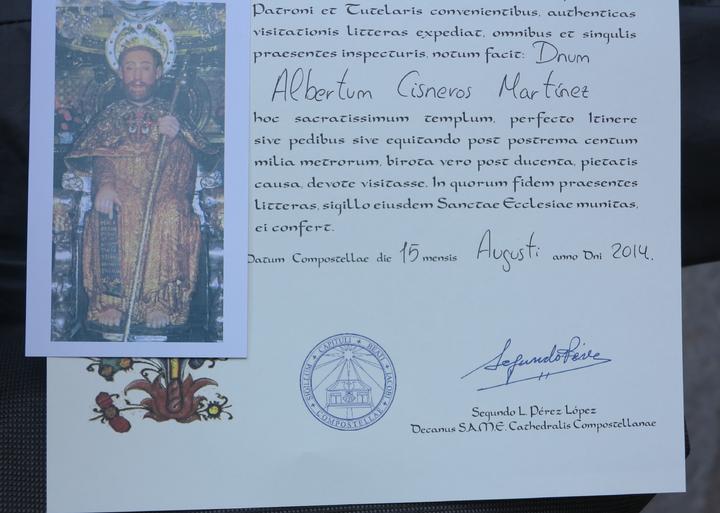 Patroni et Tutelaris convenientibus, authenticas
visitationis litteras expediat, omnibus et singulis
praesentes inspecturis, notum facit: Dnum
Albertum Cisneros Martínez
hoc sacratissimum templum, perfecto Itinere
sive pedibus sive equitando post postrema centum
milia metrorum, birota vero post ducenta, pietatis
causa, devote visitasse. In quorum fidem praesentes
litteras, sigillo eiusdem Sanctae Ecclesiae munitas,
ei confert.
Datum Compostellae die 15 mensis Augusti anno Dni 2014.
SIGILLUM CAPITULI BEATI IACOBI COMPOSTELLAE
Segundo L. Pérez López
Decanus S.A.M.E. Cathedralis Compostellanae